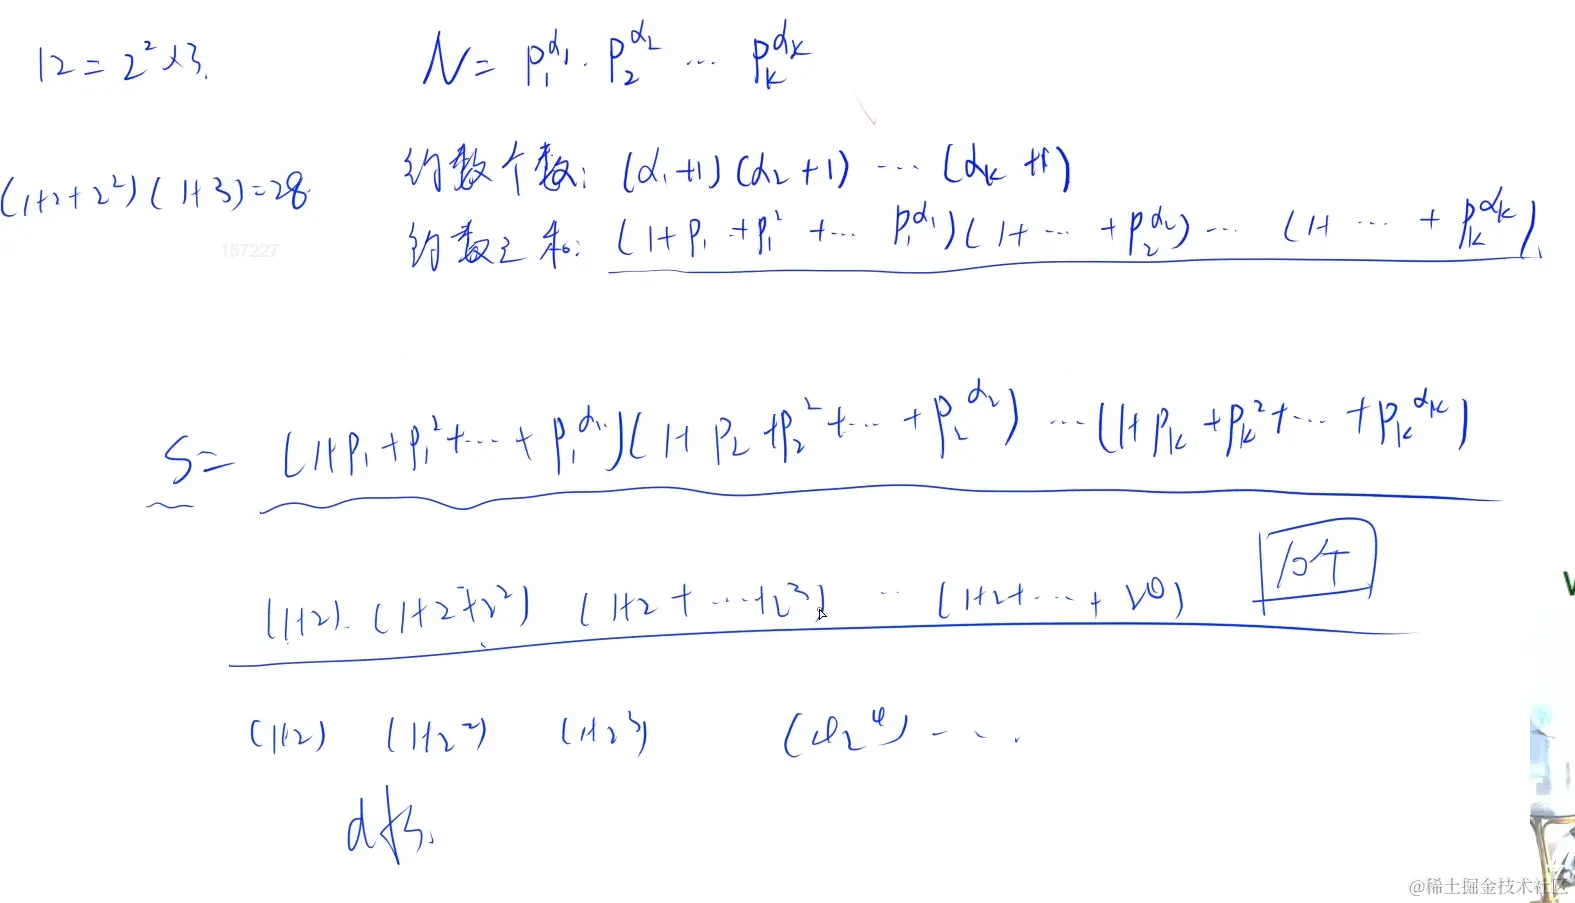 12 = 2² × 3.
N = p₁^α₁ · p₂^α₂ ⋯ pₖ^αₖ
(1+2+2²)(1+3)=28
约数个数: (α₁+1)(α₂+1) ⋯ (αₖ+1)
约数之和: (1+p₁+p₁²+⋯ p₁^α₁)(1+⋯+p₂^α₂)⋯ (1+ ⋯ + pₖ^αₖ)
157227
S = (1+p₁+p₁²+⋯+p₁^α₁)(1+p₂+p₂²+⋯+p₂^α₂) ⋯ (1+pₖ+pₖ²+⋯+pₖ^αₖ)
(1+2). (1+2+2²) (1+2+⋯+2³) ⋯ (1+2+⋯+2¹⁰)
10个
(1+2) (1+2²) (1+2³) (1+2⁴) ⋯
dfs.
@稀土掘金技术社区